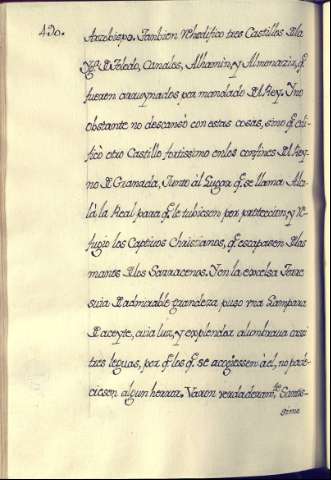 490.
Arzobispo. Tambien Rhedifico tres Castillos Dla
Ygª D Toledo, Canales, Alhamin, y Almonazir, q̃
fueron arruynados por mandado Dl Rey. Y no
obstante no descansò con estas cosas, sino q̃ edi-
ficò otro Castillo fortissimo en los confines Dl Rey-
no D Granada, Junto àl Lugar q̃ se llama Alca-
là la Real para q̃ le tubiesen por proteccion, y Re-
fugio los Captivos Christianos, q̃ escapasen Dlas
manos Dlos Sarracenos. Y en la excelsa Torre
suia D admirable grandeza puso vna Lampara
D aceyte, cuia luz, y explendor alumbraua casi
tres leguas, por q̃ los q̃ se acogiessen à el, no pade-
ciesen algun herror. Varon verdaderamte. Santis-
simo